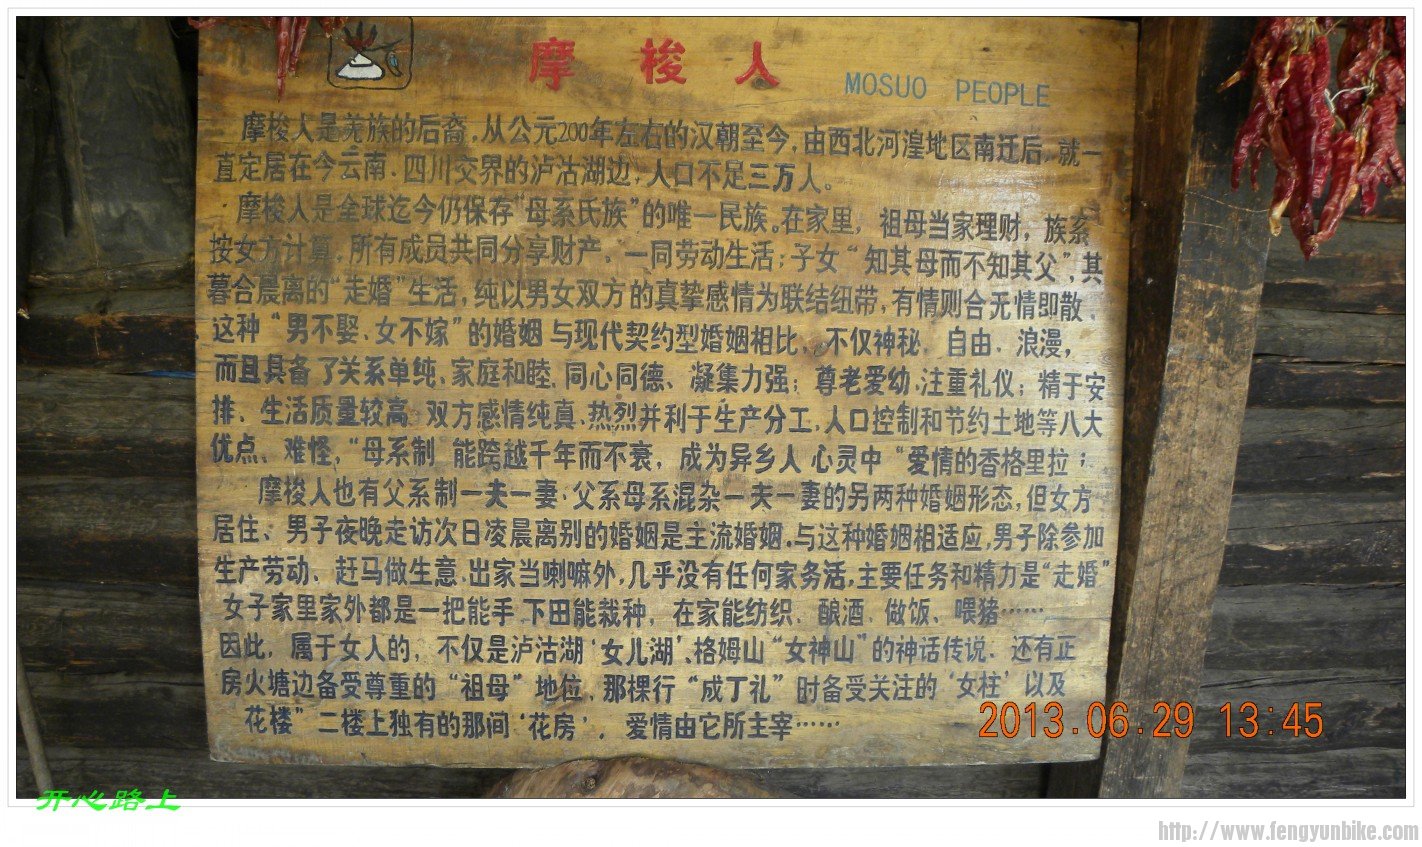 摩梭人
MOSUO PEOPLE
摩梭人是羌族的后裔，从公元200年左右的汉朝至今，由西北河湟地区南迁后，就一
直定居在今云南、四川交界的泸沽湖边，人口不足三万人。
摩梭人是全球迄今仍保存“母系氏族”的唯一民族。在家里，祖母当家理财，族系
按女方计算，所有成员共同分享财产，一同劳动生活；子女“知其母而不知其父”，其
暮合晨离的“走婚”生活，纯以男女双方的真挚感情为联结纽带，有情则合无情即散，
这种“男不娶、女不嫁”的婚姻与现代契约型婚姻相比，不仅神秘、自由、浪漫，
而且具备了关系单纯、家庭和睦、同心同德、凝集力强；尊老爱幼、注重礼仪；精于安
排、生活质量较高、双方感情纯真、热烈并利于生产分工，人口控制和节约土地等八大
优点、难怪，“母系制 能跨越千年而不衰，成为异乡人心灵中“爱情的香格里拉；
摩梭人也有父系制一夫一妻、父系母系混杂一夫一妻的另两种婚姻形态，但女方
居住、男子夜晚走访次日凌晨离别的婚姻是主流婚姻。与这种婚姻相适应，男子除参加
生产劳动、赶马做生意、出家当喇嘛外，几乎没有任何家务活，主要任务和精力是“走婚”
女子家里家外都是一把能手，下田能栽种，在家能纺织、酿酒、做饭、喂猪……
因此，属于女人的，不仅是泸沽湖‘女儿湖’、格姆山“女神山”的神话传说、还有正
房火塘边备受尊重的“祖母”地位，那棵行“成丁礼”时备受关注的‘女柱’以及
花楼”二楼上独有的那间‘花房’，爱情由它所主宰……
2013.06.29 13:45
开心路上
http://www.fengyunbike.com/